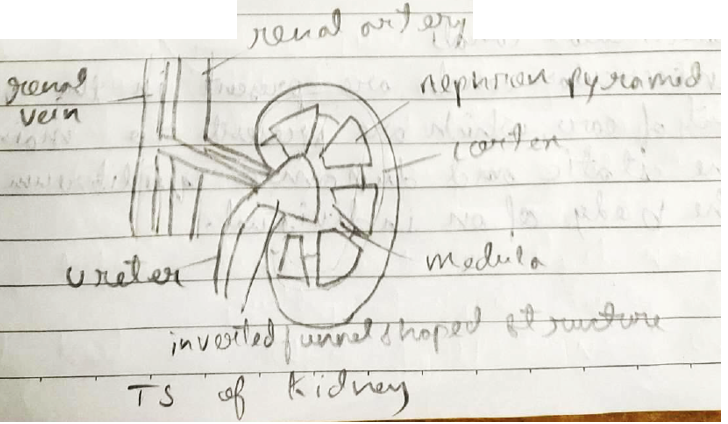 renal artery
renal
vein
nephron pyramid
cortex
ureter
medula
inverted funnel shaped structure
TS of kidney